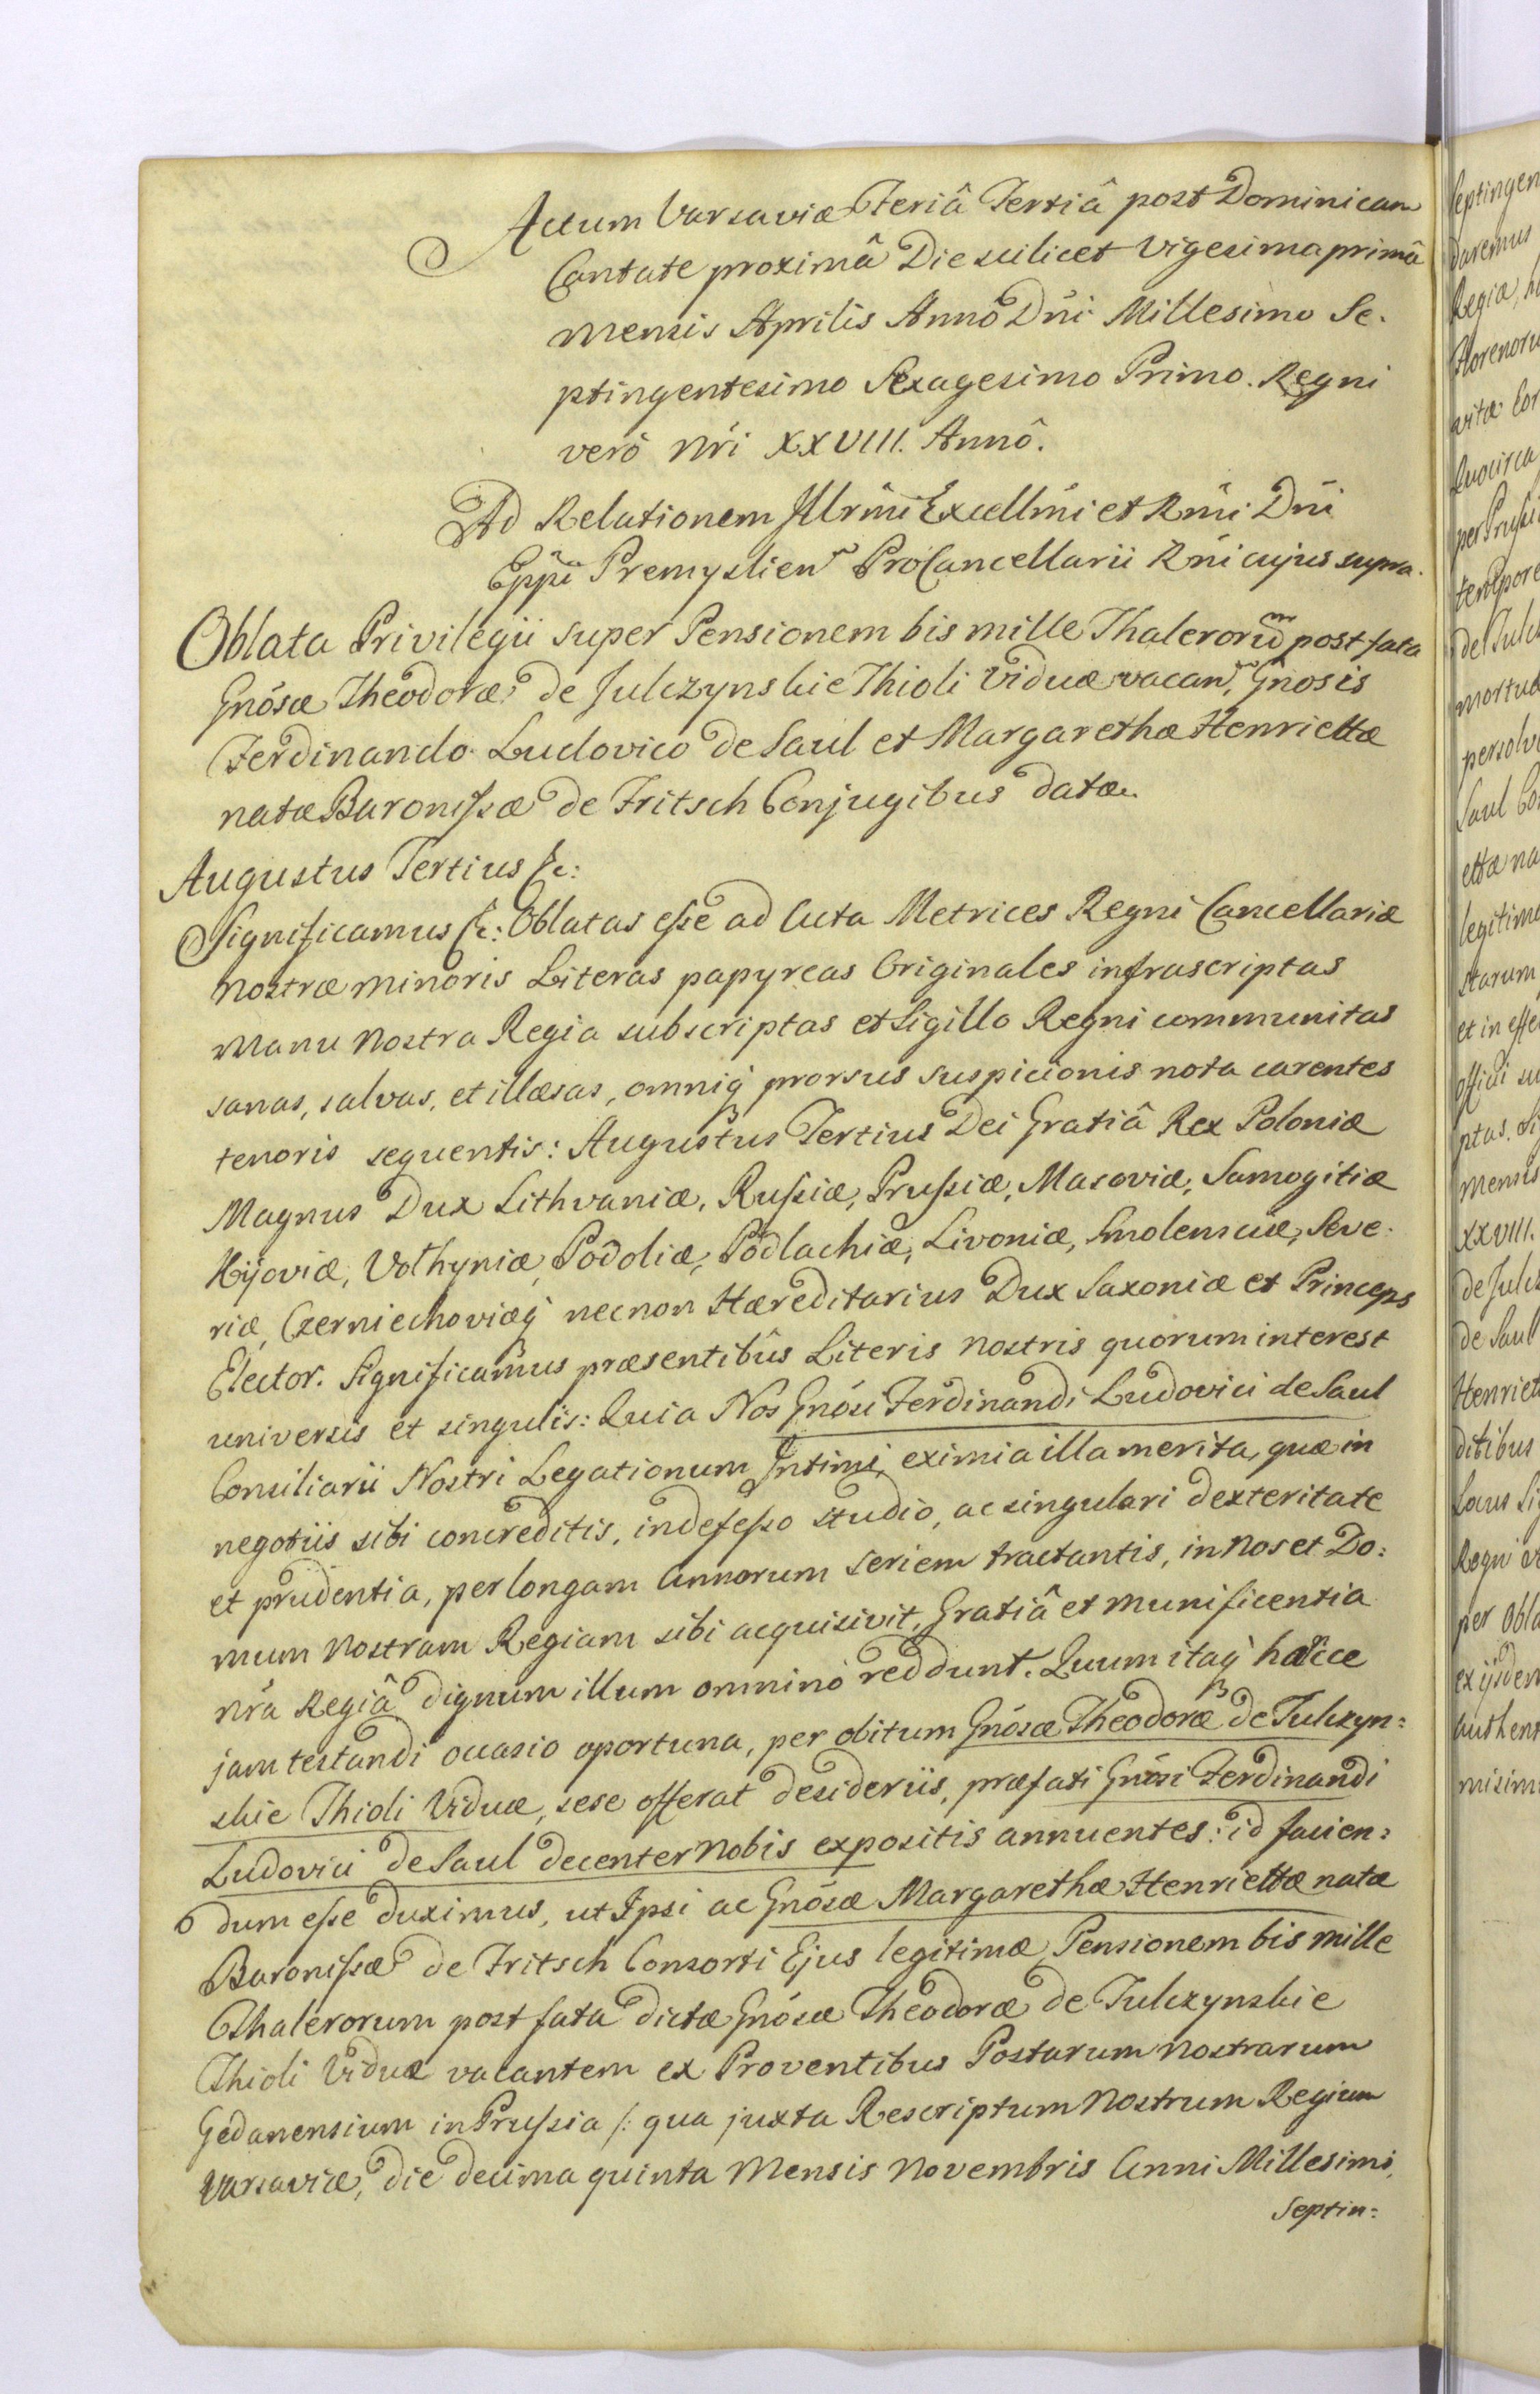 Actum Varsaviæ Feriâ Tertiâ post Dominicam
Cantate proximâ Die scilicet vigesima primâ
mensis Aprilis Annô Dńi Millesimo Se-
ptingentesimo Sexagesimo Primo. Regni
verô Nŕi XXVIII. Annô.
Ad Relationem Illrm̃i Excellm̃i et Rm̃i Dńi
Epp̃i Premyslien͂ ProCancellarii Rńi cujus supra.
Oblata Privilegii super Pensionem bis mille Thalerorum̃ post fata
Gnósæ Theodoræ de Julczynskie Thioli Viduæ vacan͂, Gnosis
Ferdinando Ludovico de Saul et Margarethæ Henriettæ
natæ Baronissæ de Fritsch Conjugibus datæ.
Augustus Tertius &c:
Significamus &c: Oblatas esse ad Acta Metrices Regni Cancellariæ
nostræ minoris Literas papyreas Originales infrascriptas
manu nostra Regia subscriptas et Sigillo Regni communitas
sanas, salvas, et illæsas, omniq́ prorsus suspicionis nota carentes
tenoris sequentis: Augustus Tertius Dei Gratiâ Rex Poloniæ
Magnus Dux Lithvaniæ, Russiæ, Prussiæ, Masoviæ, Samogitiæ
Kijoviæ, Volhyniæ, Podoliæ, Podlachiæ, Livoniæ, Smolensciæ, Seve-
riæ, Czerniechoviæq́ necnon Hæreditarius Dux Saxoniæ et Princeps
Elector. Significamus præsentibûs Literis nostris quorum interest
universis et singulis: Quia Nos Gnósi Ferdinandi Ludovici de Saul
Consiliarii Nostri Legationum Intimi, eximia illa merita, quæ in
negotiis sibi concreditis, indefesso studio, ac singulari dexteritate
et prudentia, per longam Annorum seriem tractantis, in Nos et Do:
mum nostram Regiam sibi acquisivit, Gratiâ et munificentia
nŕa Regiâ dignum illum omninò reddunt. Quum itaq́ hæcce
jam testandi occasio oportuna, per obitum Gnósæ Theodoræ de Julczyn:
skie Thioli Viduæ, sese offerat desideriis, præfati Gnósi Ferdinandi
Ludovici de Saul decenter Nobis expositis annuentes: id facien:
dum esse duximus, ut Ipsi ac Gnósæ Margarethæ Henriettæ natæ
Baronissæ de Fritsch Consorti Ejus legitimæ Pensionem bis mille
Thalerorum post fata dictæ Gnósæ Theodoræ de Julczynskie
Thioli Viduæ vacantem ex Proventibus Postarum nostrarum
Gedanensium in Prussia /: qua juxta Rescriptum Nostrum Regium
Varsaviæ, die decima quinta Mensis Novembris Anni Millesimi
Septin: